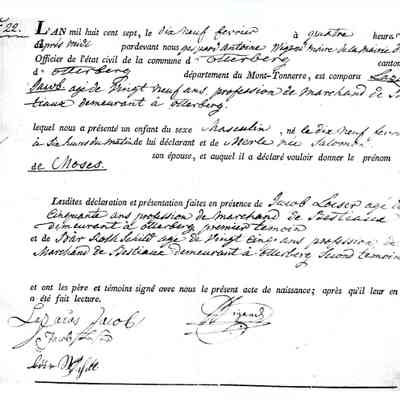 N.º 22.
L'AN mil huit cent sept, le dix neuf fevrier à quatre heures
après midi pardevant nous Maire de la Mairie d'
Officier de l'état civil de la commune d'Otterberg canton
d'Otterberg département du Mont-Tonnerre, est comparu Lazar
Jacob agé de Vingt neuf ans, profession de Marchand de
demeurant à Otterberg.
lequel nous a présenté un enfant du sexe Masculin, né le dix neuf fevr
à Six heures du matin de lui déclarant et de Merle née Salomon
son épouse, et auquel il a déclaré vouloir donner le prénom
de Moses.
Lesdites déclaration et présentation faites en présence de Jacob Loeser agé de
Cinquante ans profession de Marchand de Bestiaux
demeurant à Otterberg premier temoin
et de Bär Rothschild agé de Vingt Cinq ans profession de
Marchand de Bestiaux demeurant à Otterberg Second temoin
et ont les père et témoins signé avec nous le présent acte de naissance; après qu'il leur en
a été fait lecture.
Lazarus Jacob
Wigand